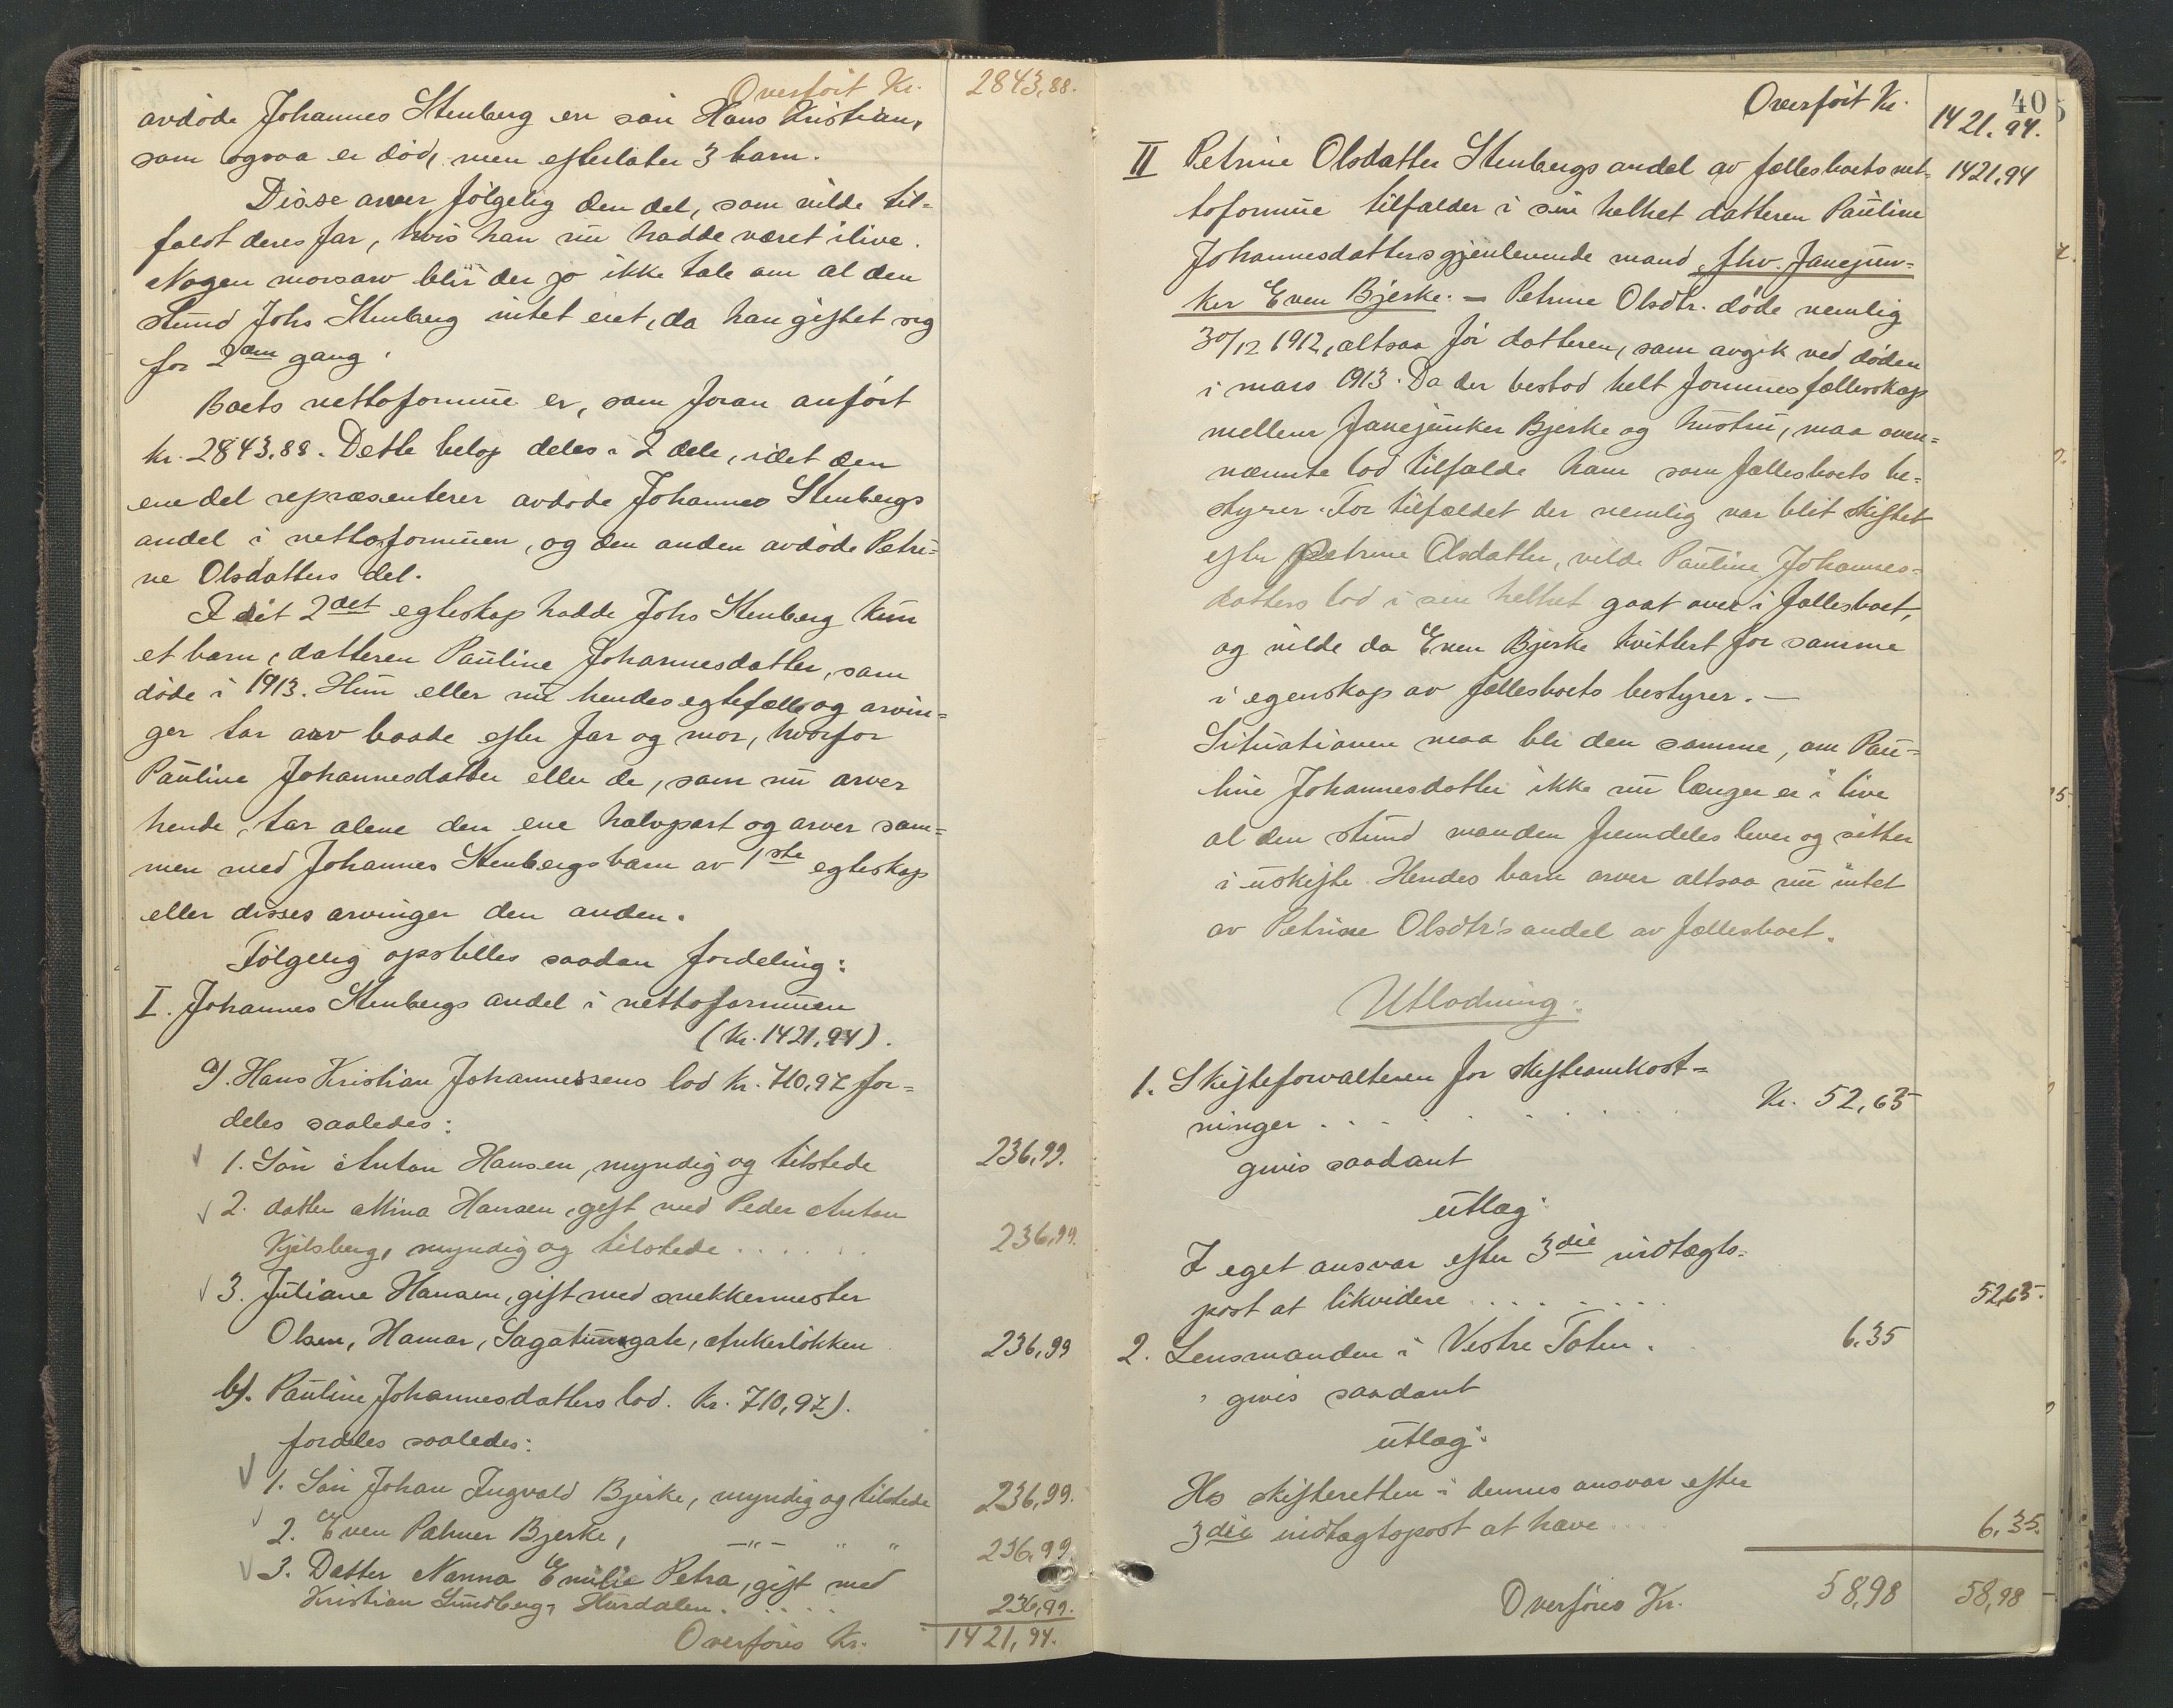 Overført Kr. 2843,88.
avdøde Johannes Stenberg en søn Hans Kristian,
som ogsaa er død, men efterlater 3 barn.
Disse arver følgelig den del, som vilde til=
faldt deres far, hvis han nu hadde været ilive.
Nogen morsarv blir der jo ikke tale om al den
stund Johs Stenberg intet eiet, da han giftet sig
for 2den gang.
Boets nettoformue er, som foran anført
kr. 2843,88. Dette beløp deles i 2 dele, idet den
ene del repræsenterer avdøde Johannes Stenbergs
andel i nettoformuen, og den anden avdøde Petri=
ne Olsdatters del.
I sit 2det egteskap hadde Johs Stenberg kun
et barn, datteren Pauline Johannesdatter, som
døde i 1913. Hun eller nu hendes egtefælle og arvin=
ger tar arv baade efter far og mor, hvorfor
Pauline Johannesdatter eller de, som nu arver
hende, tar alene den ene halvpart og arver sam=
men med Johannes Stenbergs barn av 1ste egteskap
eller disses arvinger den anden.
Følgelig opstilles saadan fordeling:
I. Johannes Stenbergs andel i nettoformuen
(kr. 1421,94).
a). Hans Kristian Johannessens lod kr. 710,97 for=
deles saaledes:
1. Søn Anton Hansen, myndig og tilstede 236,99.
2. datter Mina Hansen, gift med Peder Anton
Kjelsberg, myndig og tilstede . . . . . . 236,99.
3. Juliane Hansen, gift med snekkermester
Olsen, Hamar, Sagatunsgate, Ankerløkken 236,99
b). Pauline Johannesdatters lod. kr. 710,97).
fordeles saaledes:
1. Søn Johan Ingvald Bjerke, myndig og tilstede 236,99.
2. Even Palmer Bjerke, —"— " " 236,99
3. Datter Nanna Emilie Petra, gift med
Kristian Lundberg, Hurdalen. . . . . . 236,99.
Overføres Kr. 1421,94.
40
Overført Kr. 1421,94.
II Petrine Olsdatter Stenbergs andel av fællesboets net= 1421,94
toformue tilfalder i sin helhet datteren Pauline
Johannesdatters gjenlevende mand, fhv. fanejun=
ker Even Bjerke. — Petrine Olsdtr. døde nemlig
30/12 1912, altsaa før datteren, som avgik ved døden
i mars 1913. Da der bestod helt formuesfællesskap
mellem fanejunker Bjerke og hustru, maa oven=
nævnte lod tilfalde ham som fællesboets be=
styrer. For tilfældet der nemlig var blit skiftet
efter Petrine Olsdatter, vilde Pauline Johannes=
datters lod i sin helhet gaat over i fællesboet,
og vilde da Even Bjerke kvittert for samme
i egenskap av fællesboets bestyrer. —
Situationen maa bli den samme, om Pau=
line Johannesdatter ikke nu længer er i live
al den stund manden fremdeles lever og sitter
i uskifte. Hendes barn arver altsaa nu intet
av Petrine Olsdtr's andel av fællesboet.
Utlodning:
1. Skifteforvalteren for skifteomkost=
ninger . . . . . . . . Kr. 52,63
givis saadant
utlæg:
I eget ansvar efter 3die indtægts=
post at likvidere . . . . . . . 52,63.
2. Lensmanden i Vestre Toten . 6,35
givis saadant
utlæg:
Hos skifteretten i dennes ansvar efter
3die indtægtspost at have . . . . 6,35.
Overføres Kr. 58,98 58,98